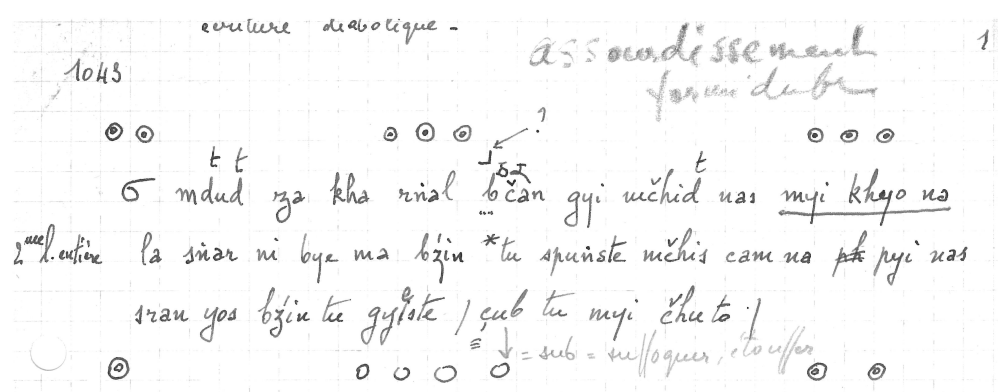 ecriture diabolique -
assourdissement 1
1043
formidable
?
t t t
σ mdud za kha rṅal bčan gyi mčhid nas myi khyo na
2me l. entière la sṅar ni bye ma bžin *tu spuṅste mčhis cam na pyi nas
sran yos bžin tu gyeste / çub tu myi čhuto /
↓ = sub = suffoquer, étouffer